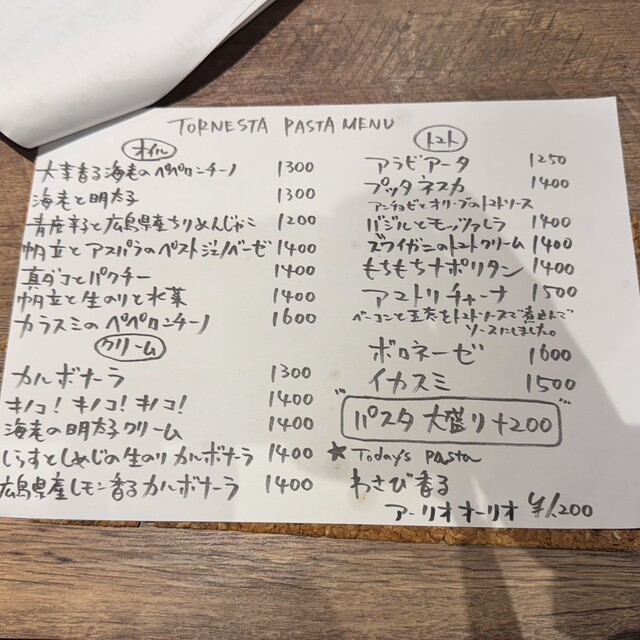 TORNESTA PASTA MENU
オイル
大葉香る海老のペペロンチーノ 1300
海老と明太子 1300
青唐辛子と広島県産ちりめんじゃこ 1200
帆立とアスパラのペストジェノベーゼ 1400
真ダコとパクチー 1400
帆立と生のりと水菜 1400
カラスミのペペロンチーノ 1600
クリーム
カルボナーラ 1300
キノコ!キノコ!キノコ! 1400
海老の明太子クリーム 1400
しらすとしめじの生のりカルボナーラ 1400
広島県産レモン香るカルボナーラ 1400
トマト
アラビアータ 1250
プッタネスカ 1400
アンチョビとオリーブのトマトソース
バジルとモッツァレラ 1400
ズワイガニのトマトクリーム 1400
もちもちナポリタン 1400
アマトリチャーナ 1500
ベーコンと玉ネギをトマトソースで煮込んで
ソースにしました。
ボロネーゼ 1600
イカスミ 1500
"パスタ 大盛り +200"
★ Today's Pasta
わさび香る
アーリオオーリオ ¥1,200